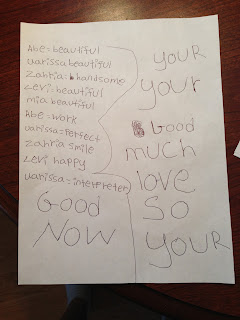 Abe=beautiful
varissa beautiful
zahria=handsome
Levi=beautiful
mia beautiful
Abe=work
varissa=perfect
zahria smile
Levi happy
varissa=interpreter
Good
NOW
youR
your
Good
much
love
so
youR